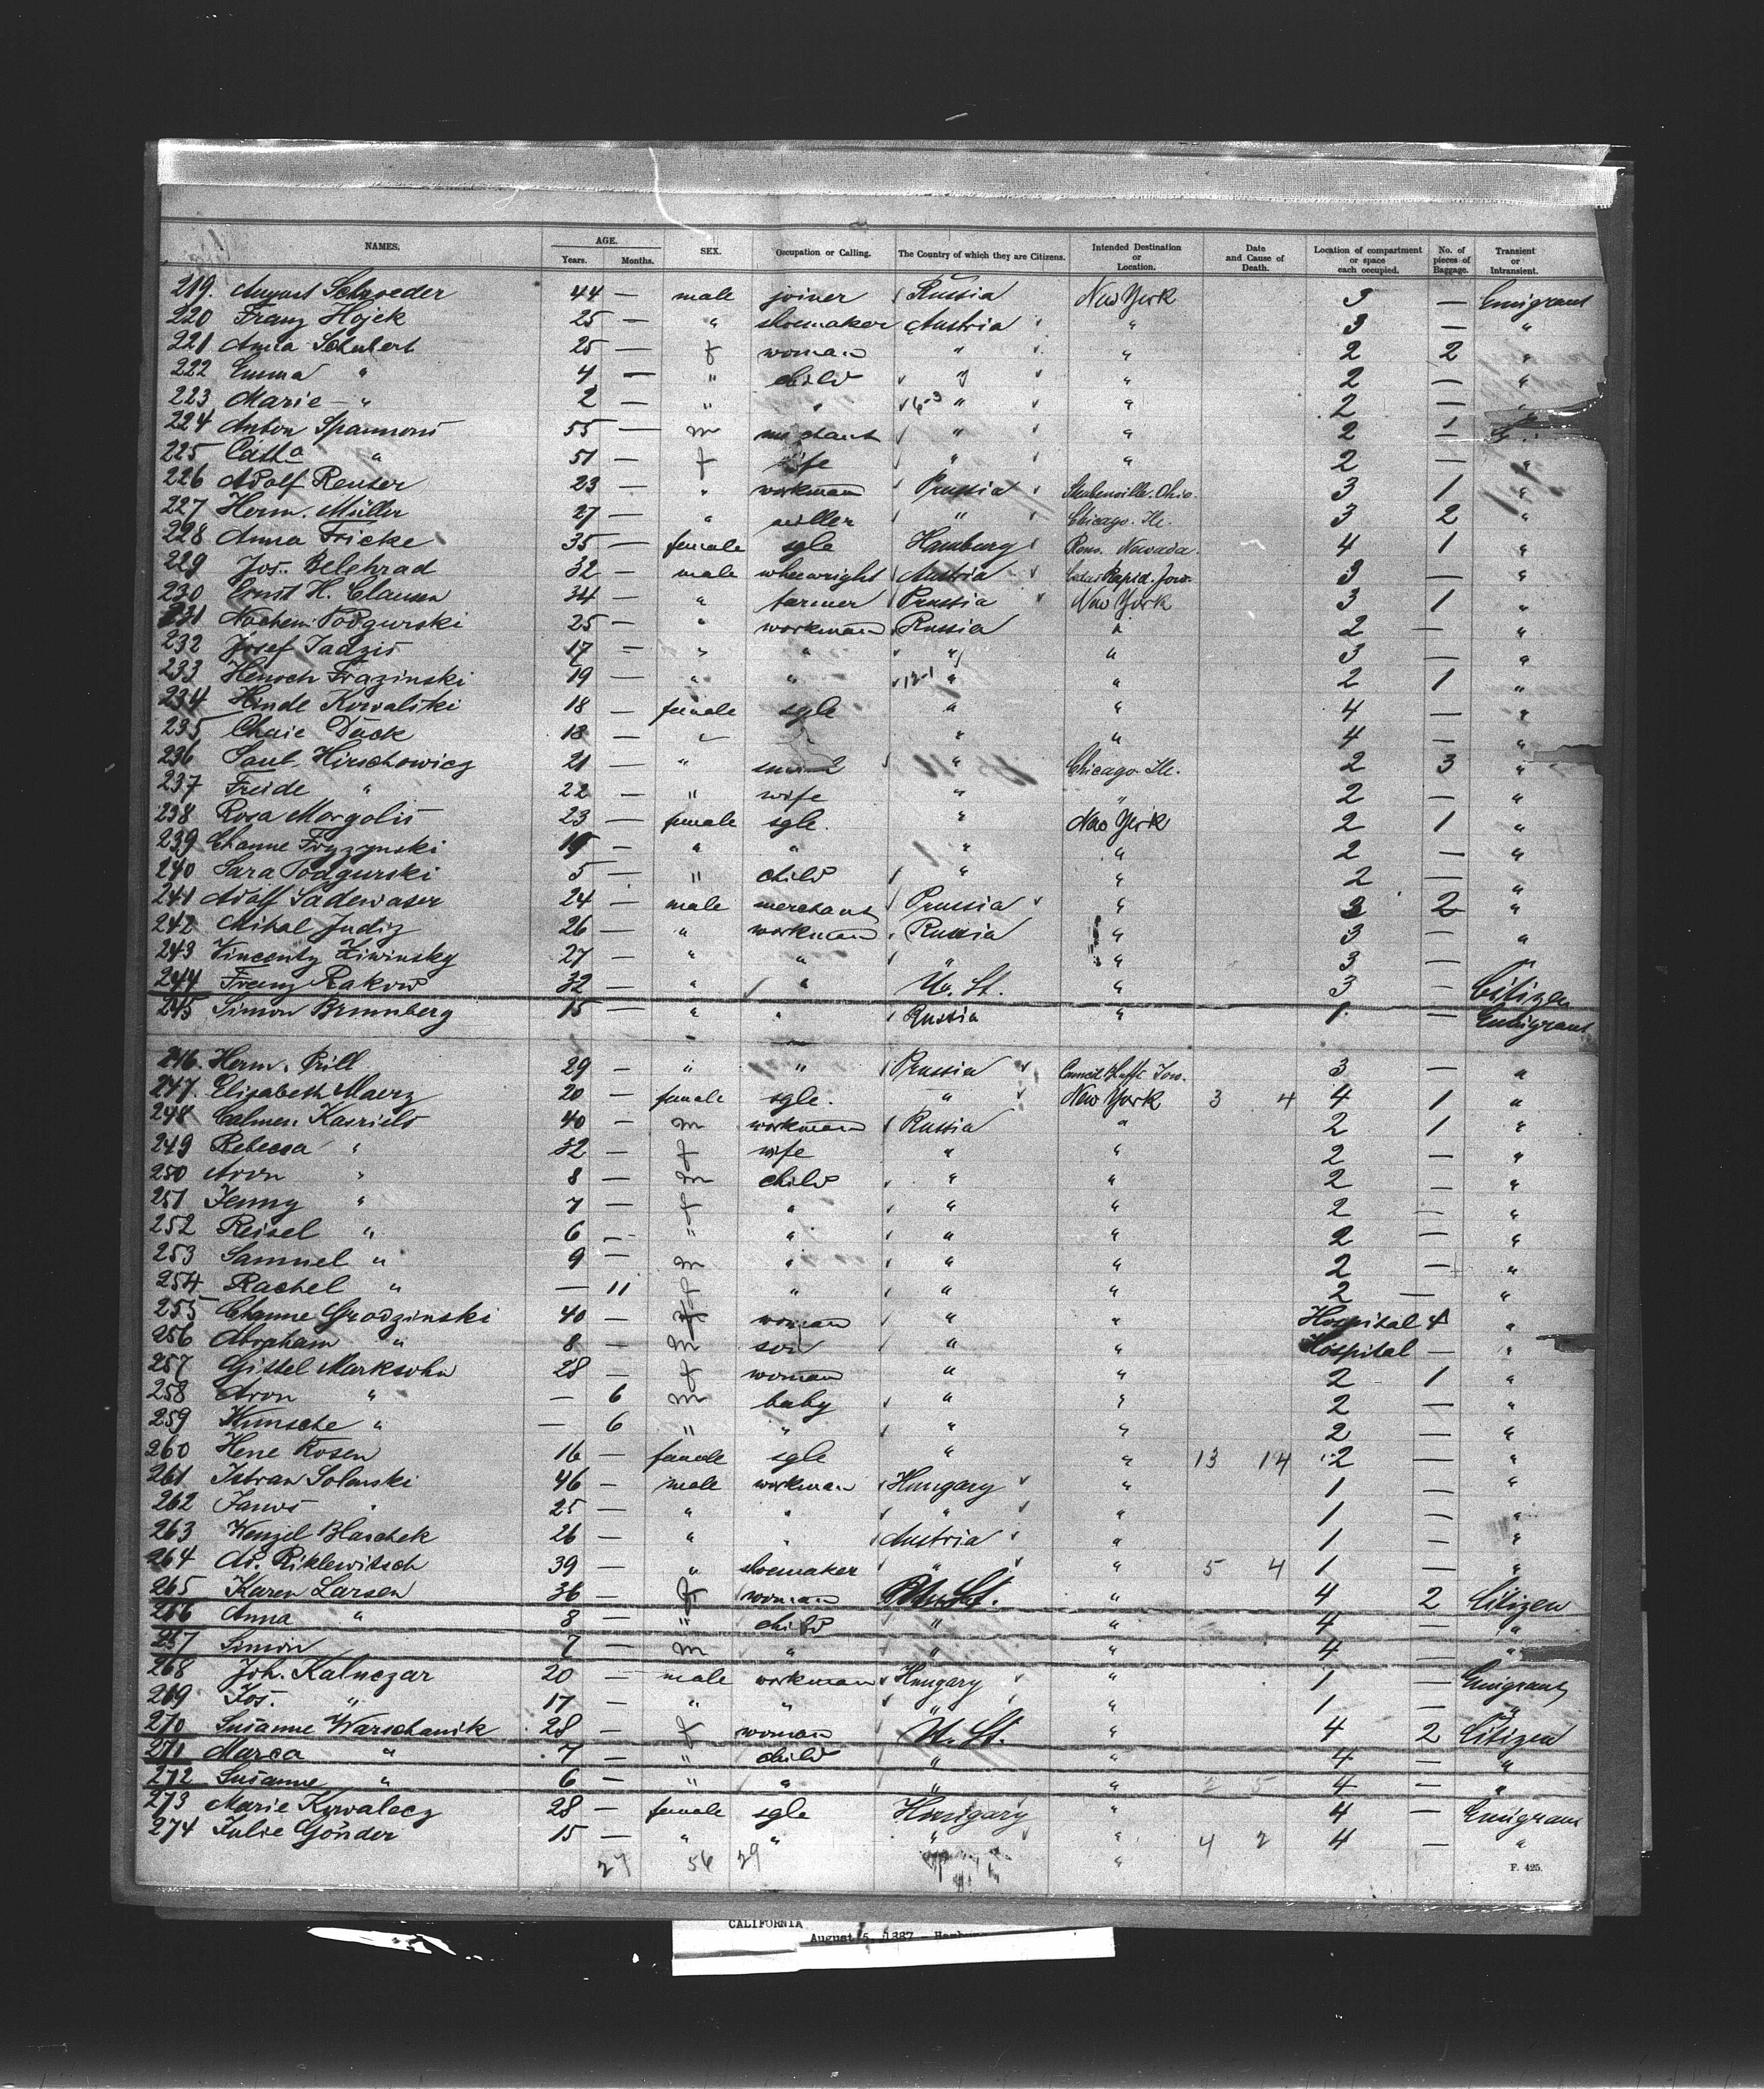 NAMES. AGE. Years. Months. SEX. Occupation or Calling. The Country of which they are Citizens. Intended Destination or Location. Date and Cause of Death. Location of compartment or space each occupied. No. of pieces of Baggage. Transient or Intransient.
219. August Schroeder 44 — male joiner Russia New York 3 — Emigrant
220 Franz Hojek 25 — " shoemaker Austria " 3 — "
221 Anna Schubert 25 — f woman " " 2 2 "
222 Emma " 4 — " child " " 2 — "
223 Marie — " 2 — " " " " 2 — "
224 Anton 55 — m " " 2 1
225 " 51 — f wife " " 2 — "
226 Adolf Renser 23 — " workman Prussia Steubenville. Ohio. 3 1 "
227 Herm. Müller 27 — " miller " Chicago. Ill. 3 2 "
228 Anna Fricke 35 — female sgle Hamburg Reno. Nevada. 4 1 "
229 Jos. Belehrad 32 — male wheelwright Austria Cedar Rapid. Jow. 3 — "
230 Ernst H. Clausen 34 — " farmer Prussia New York 3 1 "
231 Nochem Podgurski 25 — " workman Russia " 2 — "
232 Josef Jadzis 17 — " " " " 3 — "
233 Henoch Frazinski 19 — " " 12-1 " " 2 1 "
234 Hinde Kowalski 18 — female sgle " " 4 — "
235 Chaie Dück 18 — " " " 4 — "
236 Saul Hirschowicz 21 — " " Chicago Ill. 2 3 "
237 Freide " 22 — " wife " " 2 — "
238 Rosa Margolis 23 — female sgle. " New York 2 1 "
239 Channe Fryzynski 19 — " " " " 2 — "
240 Sara Podgurski 5 — " child " " 2 — "
241 Adolf Sadewaser 24 — male merchant Prussia " 3 2 "
242 Mihal Judiz 26 — " workman Russia " 3 — "
243 Vincenty Ziwinsky 27 — " " " " 3 — "
244 Franz Rakow 32 — " " U. St. " 3 — Citizen
245 Simon Brunnberg 15 — " " Russia " 1 — Emigrant
246. Herm. Prill 29 — " " Prussia Council Bluffs Jow. 3 — "
247. Elisabeth Maerz 20 — female sgle. " New York 3 4 4 1 "
248 Calmen Kasriels 40 — m workman Russia " 2 1 "
249 Rebecca " 32 — f wife " " 2 — "
250 Aron " 8 — m child " " 2 — "
251 Jenny " 7 — f " " " 2 — "
252 Reisel " 6 — " " " " 2 — "
253 Samuel " 9 — m " " " 2 — "
254 Rachel " — 11 f " " " 2 — "
255 Channe Grodzinski 40 — f woman " " Hospital 1 "
256 Abraham " 8 — m son " " Hospital — "
257 Gittel Marksohn 28 — f woman " " 2 1 "
258 Aron " — 6 m baby " " 2 — "
259 " — 6 " " " " 2 — "
260 Hene Rosen 16 — female sgle " " 13 14 2 — "
261 Istvan Solenski 46 — male workman Hungary " 1 — "
262 Janos " 25 — " " " " 1 — "
263 Wenzel Blaschek 26 — " " Austria " 1 — "
264 Ad. Riklewitsch 39 — " shoemaker " " 5 4 1 — "
265 Karen Larsen 36 — f woman U. St. " 4 2 Citizen
266 Anna " 8 — " child " " 4 — "
267 Simon 7 — m " " " 4 — "
268 Joh. Kalnczar 20 — male workman Hungary " 1 — Emigrant
269 Jos. " 17 — " " " " 1 — "
270 Susanne Warschanik 28 — f woman U. St. " 4 2 Citizen
271 Marca " 7 — " child " " 4 — "
272 Susanne " 6 — " " " " 2 5 4 — "
273 Marie Kowalecz 28 — female sgle Hungary " 4 — Emigrant
274 Julie Gönder 15 — " " " " 4 2 4 — "
27 56 29 "
F. 425.
CALIFORNIA
August 5, 1887 - Hamburg